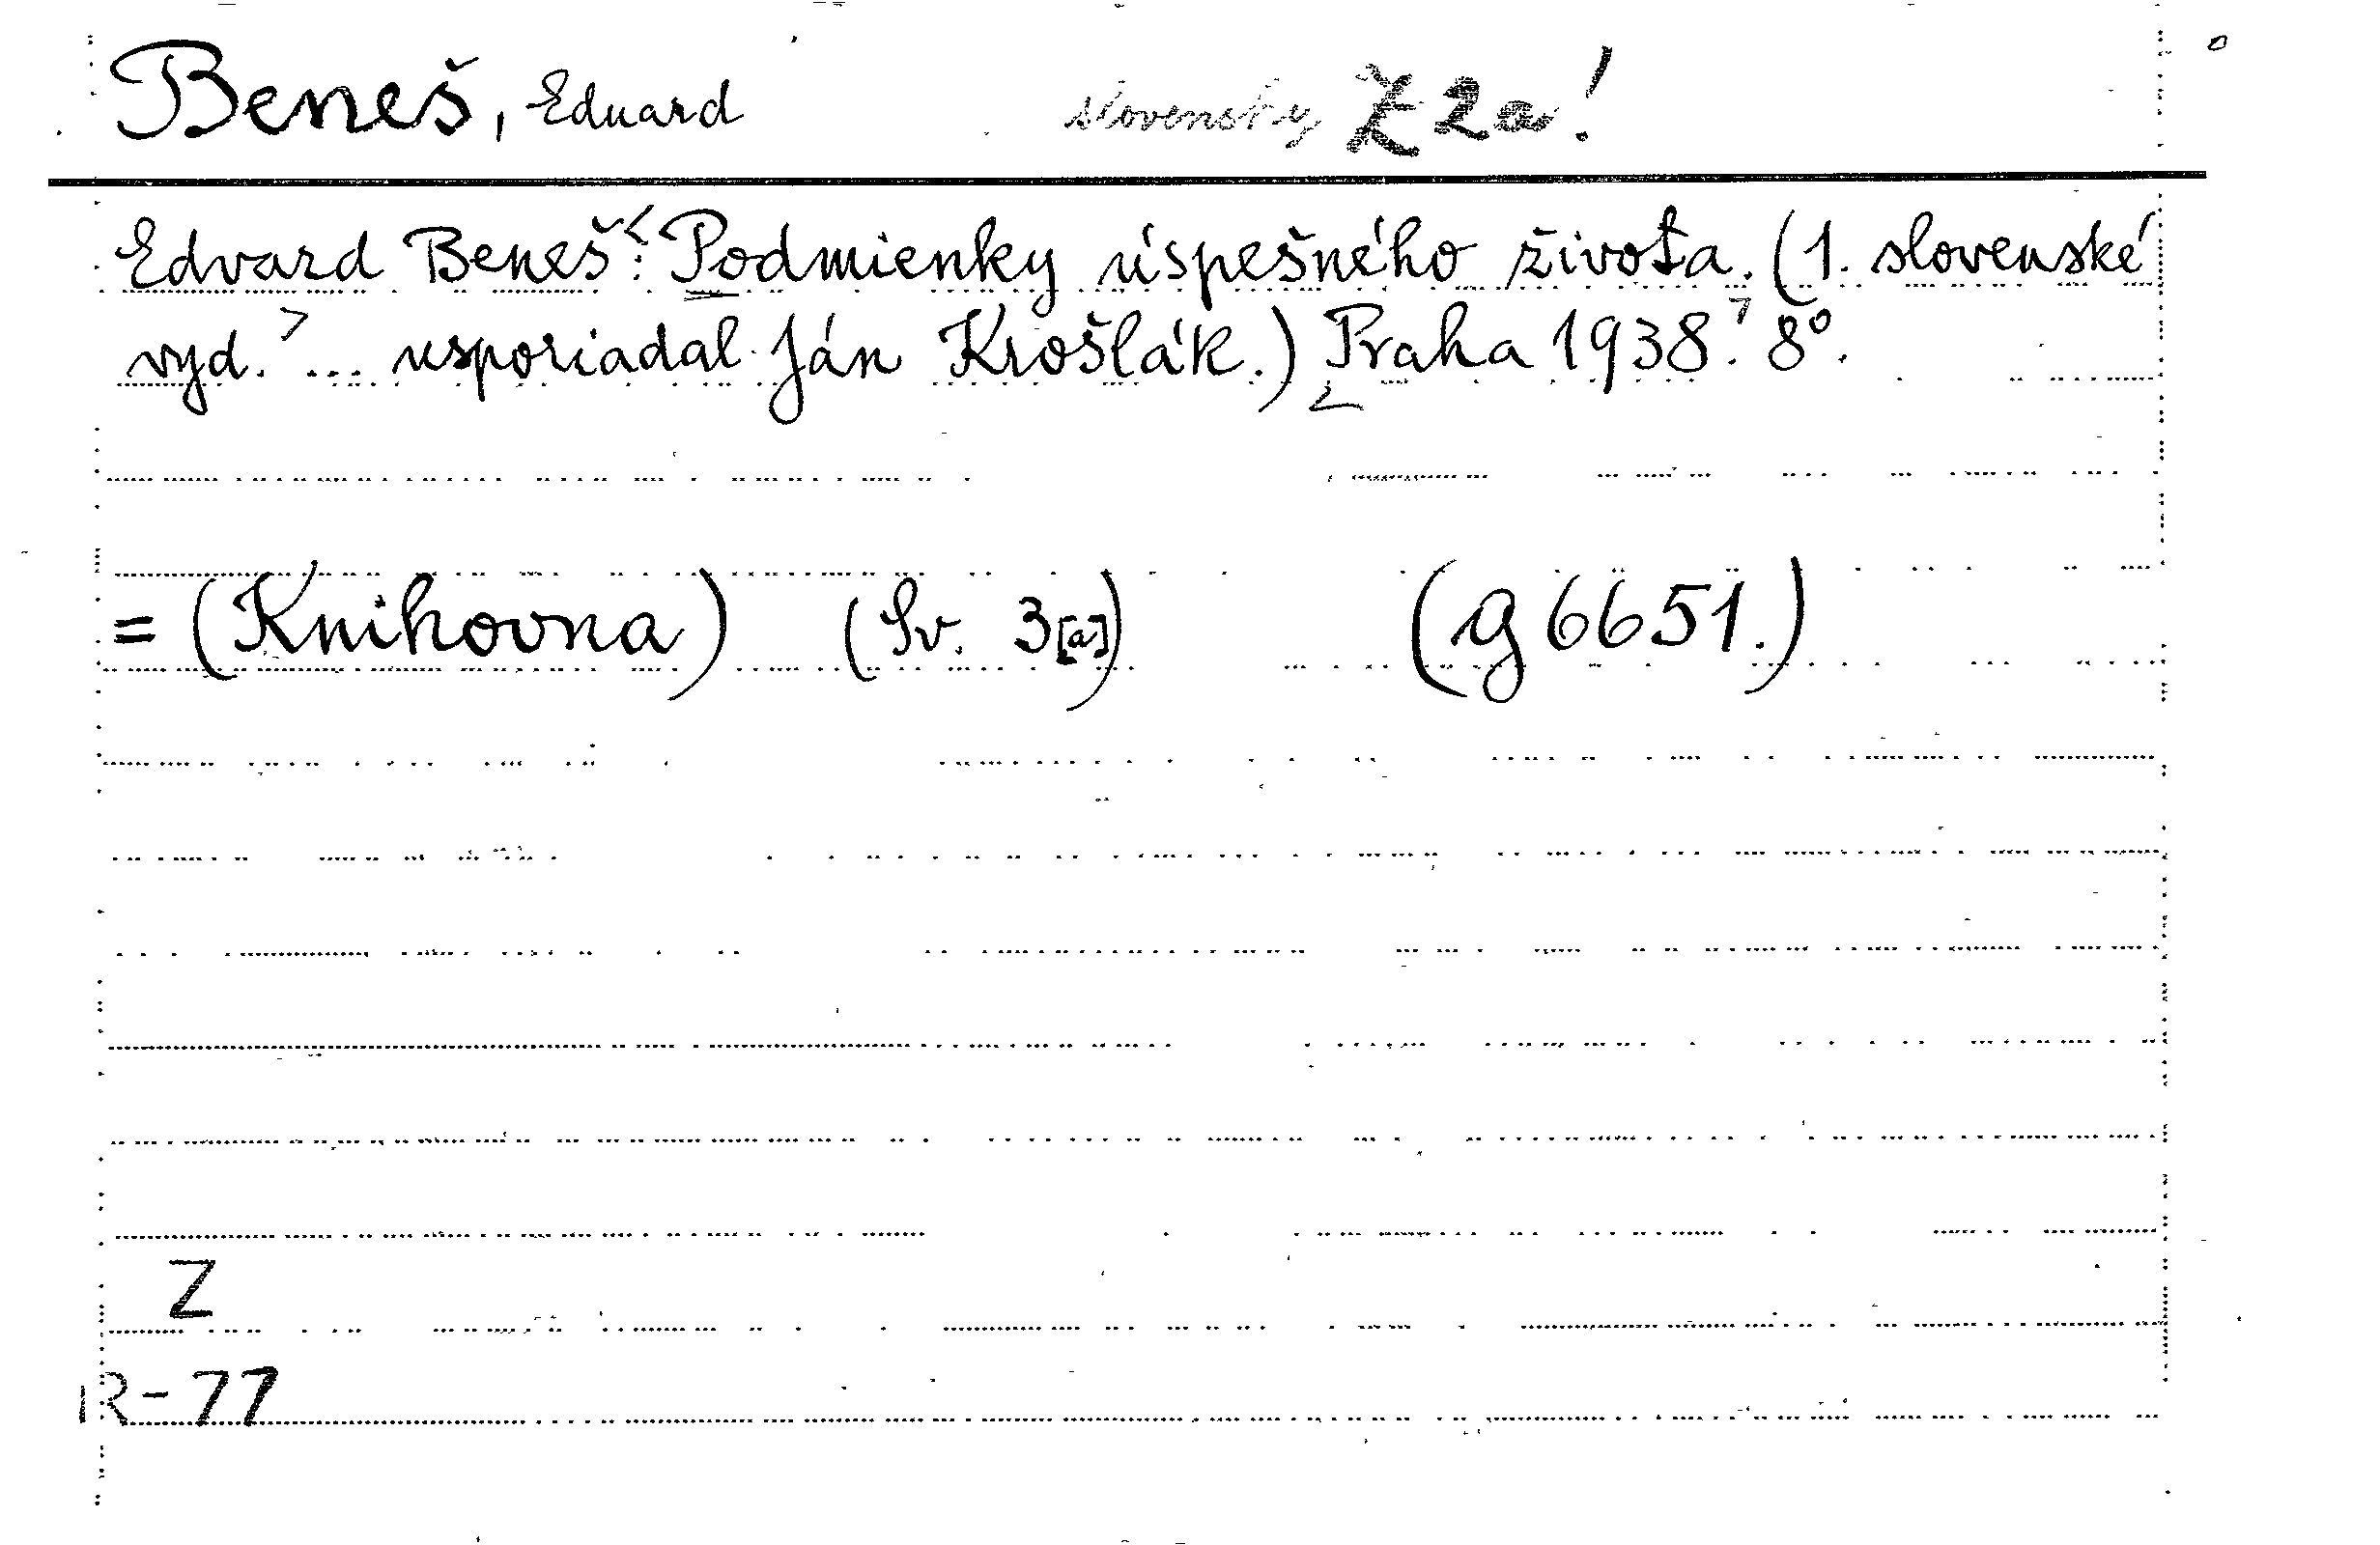 Beneš, Eduard slovensky Z 2a!
Edvard Beneš: Podmienky úspešného života. (1. slovenské
vyd. ... usporiadal Ján Krošlák.) Praha 1938. 8°.
= (Knihovna) (Sv. 3[a]) (g 6651.)
Z
R-77